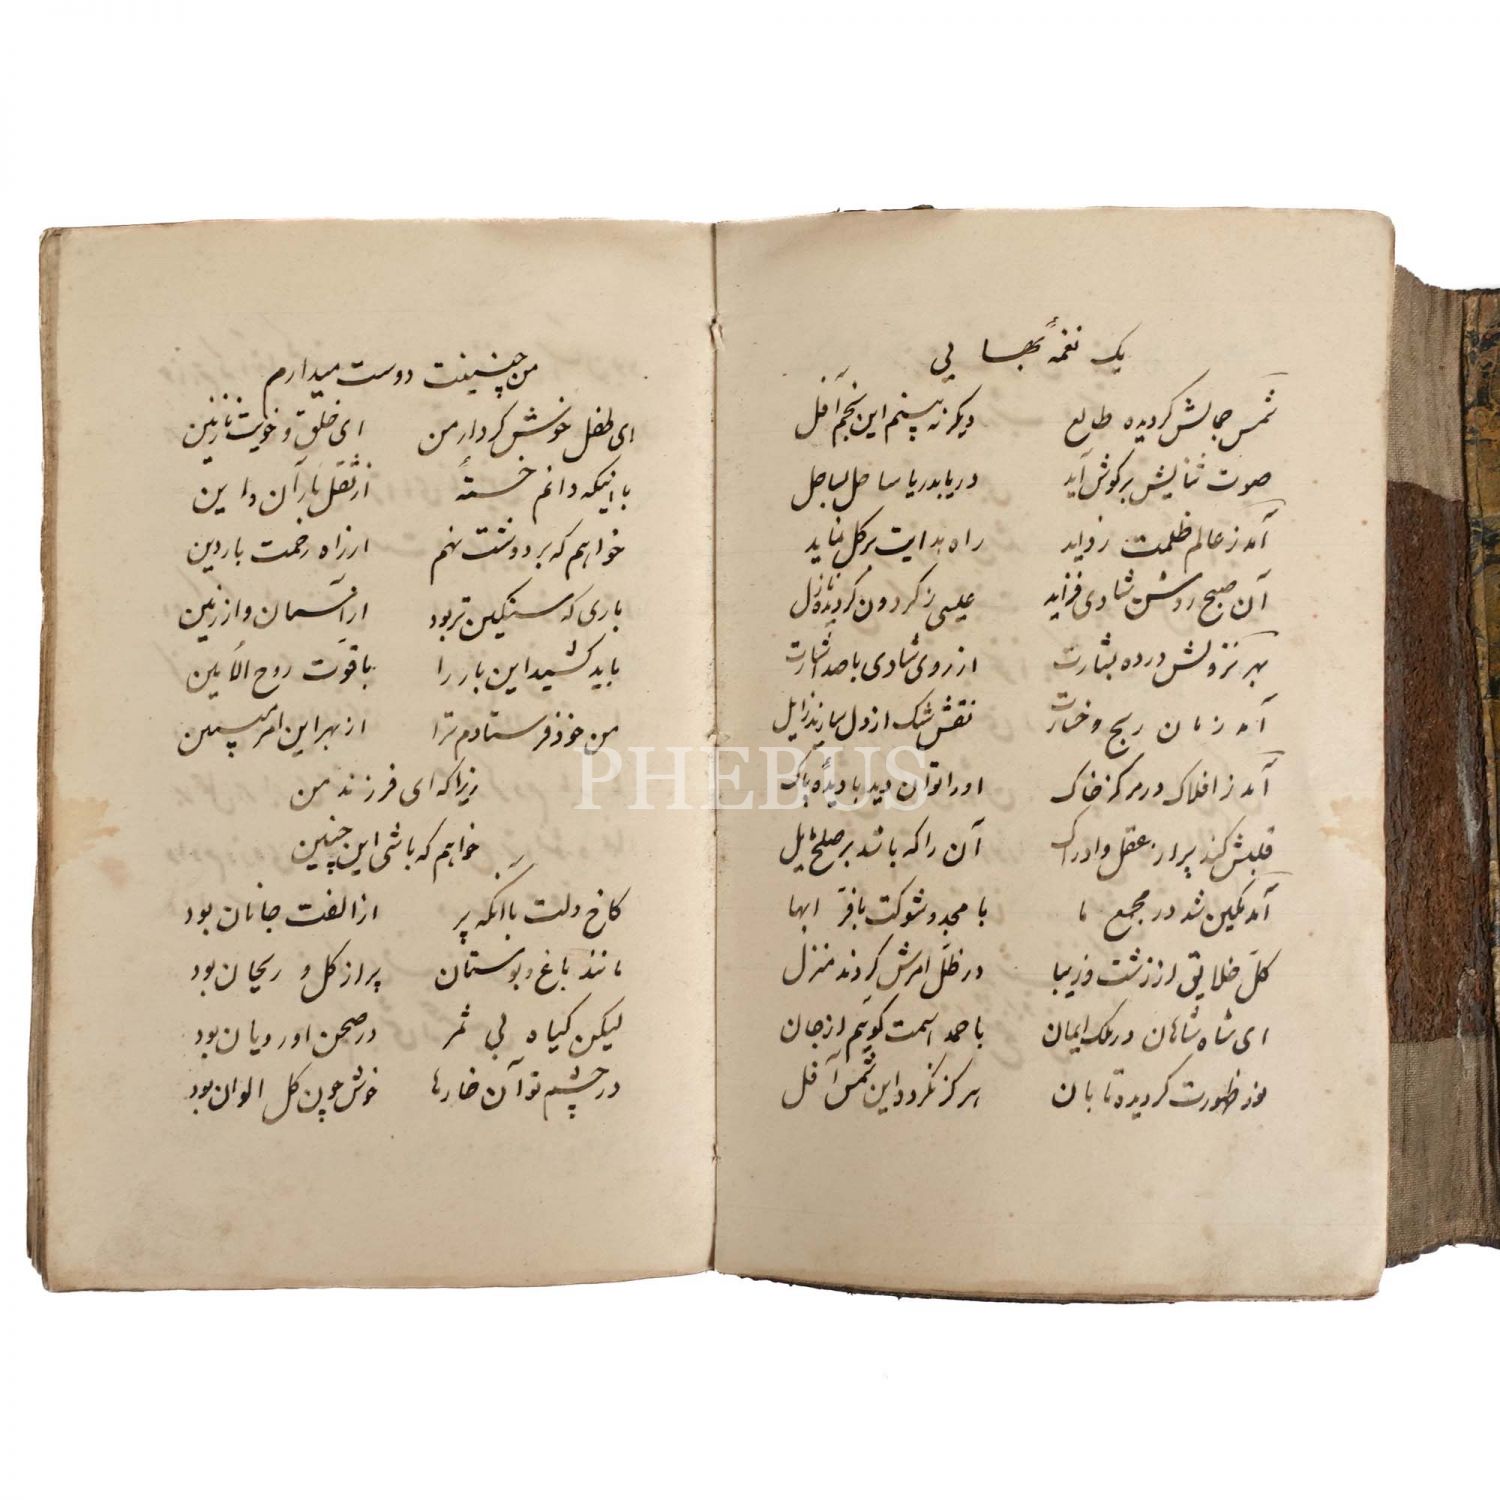 یک نغمهٔ بهائی
شمس جمالش گردیده طالع دیگر نه بینم این نجم آفل
صوت ثنایش بر گوش آید دریا بدریا ساحل بساحل
آمد ز عالم ظلمت زداید راه هدایت بر کل نماید
آن صبح روشن شادی فزاید عیسی ز گردون گردیده نازل
بهر نزولش در ده بشارت از روی شادی با صد اشارت
آمد زمان ربح و خسارت نقش شک از دل سازند زایل
آمد ز افلاک در مرکز خاک او را توان دید با دیدهٔ پاک
قلبش کند پر از عقل و ادراک آن را که باشد بر صلح مایل
آمد مکین شد در مجمع ما با مجد و شوکت با فر ابها
کل خلایق از زشت و زیبا در ظل امرش کردند منزل
ای شاه شاهان در ملک ایمان با حمد اسمت گویم از جان
نور ظهورت گردیده تابان هرگز نگردد این شمس آفل
من چنینت دوست میدارم
ای طفل خوش کردار من ای خلق و خویت نازنین
با اینکه دانم خستهٔ از ثقل بار آن و این
خواهم که بر دوشت نهم از راه رحمت بار دین
باری که سنگین تر بود از آسمان و از زمین
باید کشید این بار را با قوت روح الأمین
من خود فرستادم ترا از بهر این امر مبین
زیرا که ای فرزند من
خواهم که باشی این چنین
کاخ دلت با آنکه پر از الفت جانان بود
مانند باغ و بوستان پر از گل و ریحان بود
لیکن گیاه بی ثمر در صحن او رویان بود
در چشم تو آن خارها خوش چون گل الوان بود
PHEBUS